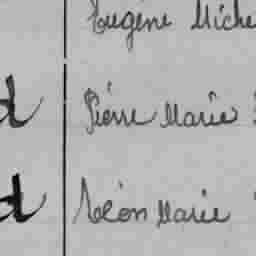 Eugène Miche
d Pierre Marie
d Léon Marie